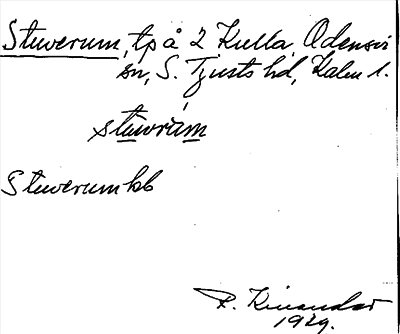 Stuverum, tp å 2 Kulla, Odensvi
sn, S. Tjusts hd, Kalm l.
stuvrum
Stuverum kb
R. Kinander
1929.